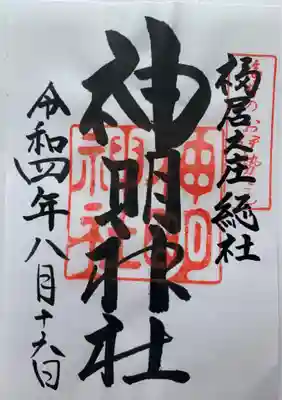 福居之庄総社
神明神社
神明
神社
令和四年八月十六日